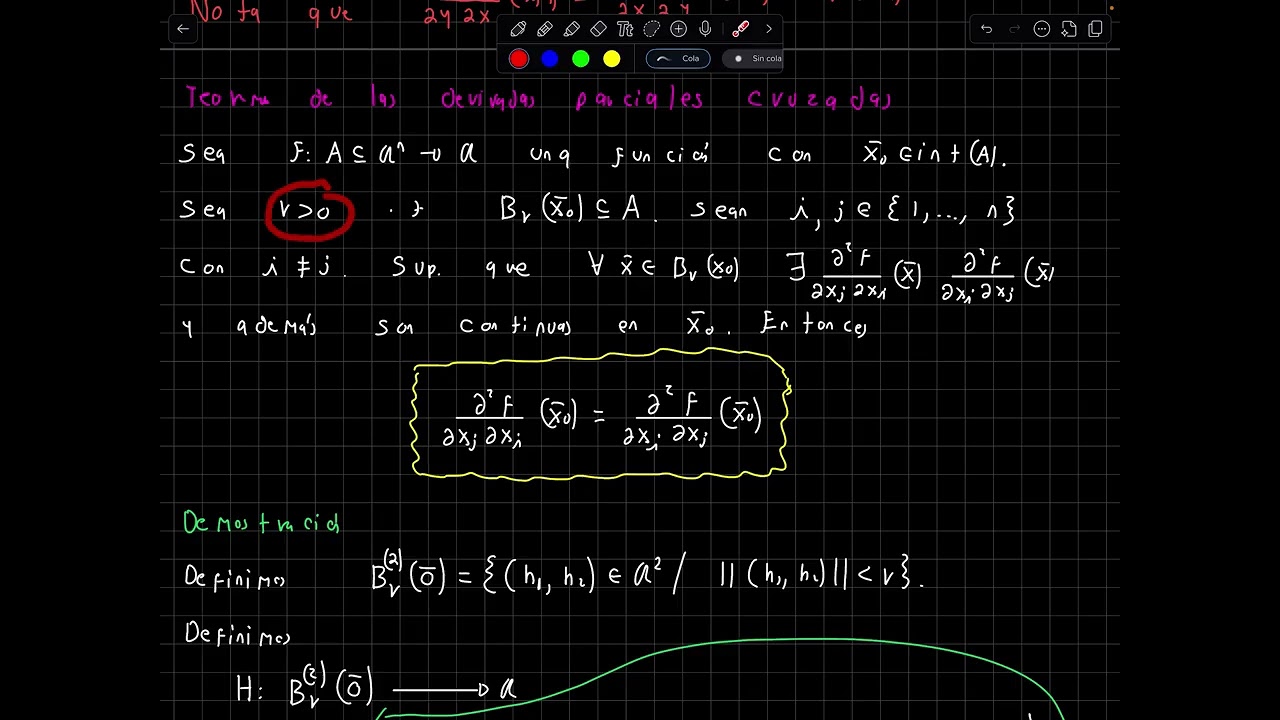 Nota que ∂y∂x ∂x∂y
Cola Sin cola
Teorema de las derivadas parciales cruzadas
Sea F: A ⊆ ℝⁿ → ℝ una función con x̄₀ ∈ int(A).
Sea r>0 . t Bᵣ(x̄₀) ⊆ A. Sean i, j ∈ {1,..., n}
Con i ≠ j. Sup. que ∀ x̄ ∈ Bᵣ(x₀) ∃ ∂²F/∂xⱼ∂xᵢ (x̄) ∂²F/∂xᵢ∂xⱼ (x̄)
y además son continuas en x̄₀. Entonces
∂²F/∂xⱼ∂xᵢ (x̄₀) = ∂²F/∂xᵢ∂xⱼ (x̄₀)
Demostración
Definimos Bᵣ⁽²⁾(0̄) = {(h₁, h₂) ∈ ℝ² / ||(h₁, h₂)|| < r}.
Definimos
H: Bᵣ⁽²⁾(0̄) → ℝ